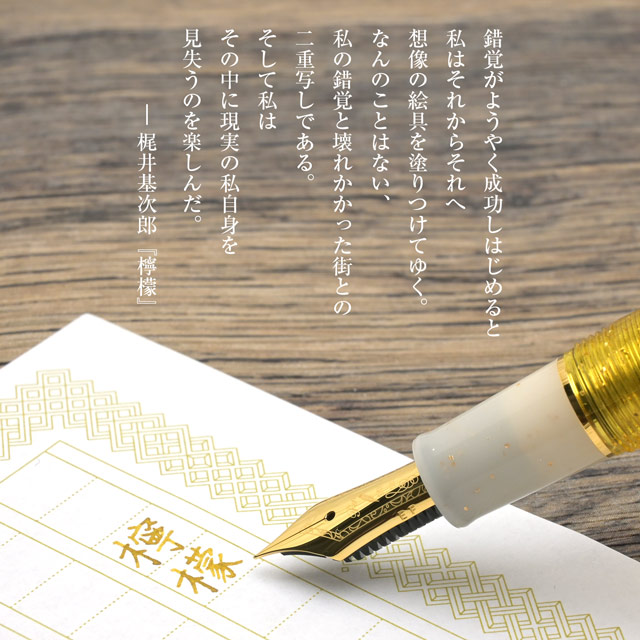 錯覚がようやく成功しはじめると
私はそれからそれへ
想像の絵具を塗りつけてゆく。
なんのことはない、
私の錯覚と壊れかかった街との
二重写しである。
そして私は
その中に現実の私自身を
見失うのを楽しんだ。
― 梶井基次郎『檸檬』
檸檬